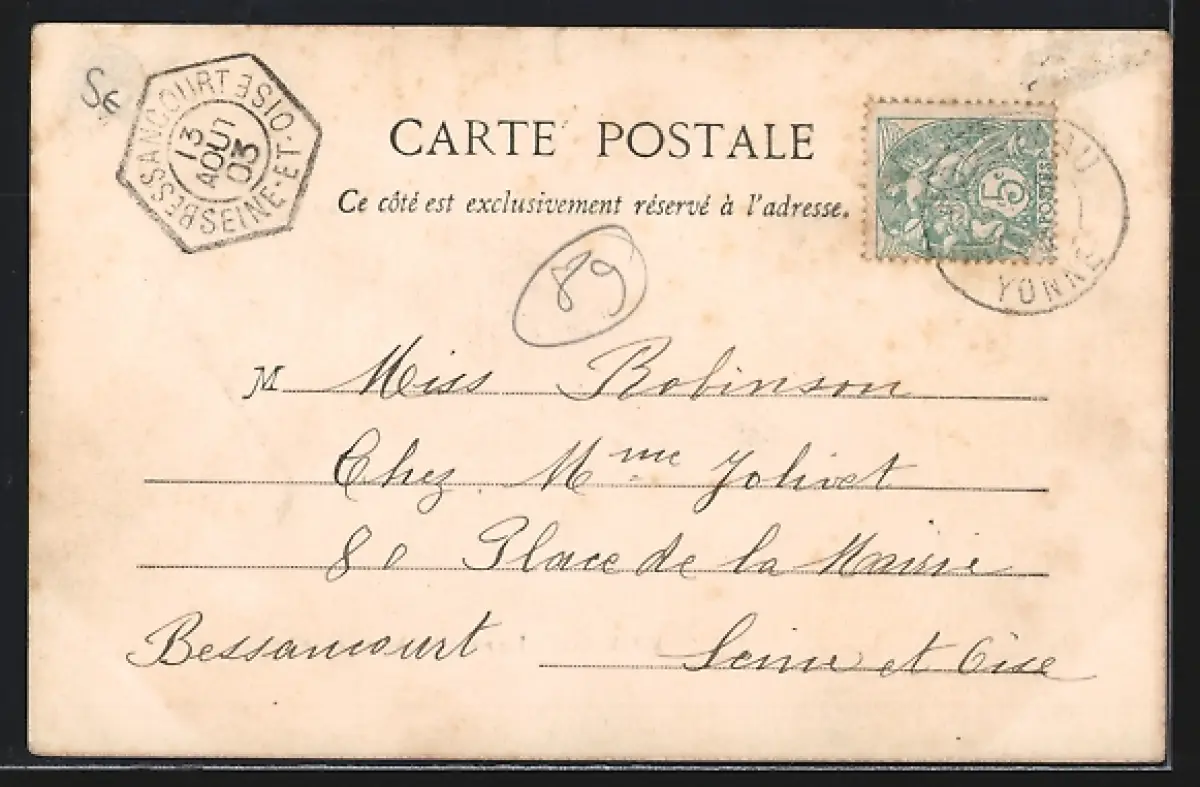 Se
BESSANCOURT SEINE-ET-OISE
13
AOUT
03
CARTE POSTALE
Ce côté est exclusivement réservé à l'adresse.
5c
POSTES
AU
YONNE
89
M Miss Robinson
Chez Mme Jolivet
80 Place de la Mairie
Bessancourt Seine et Oise